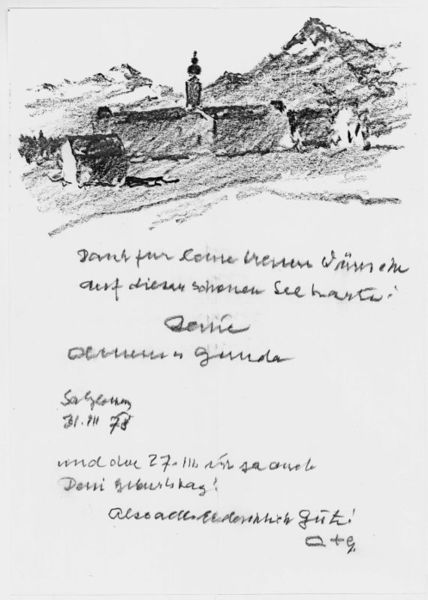 Dank für Deine treuen Wünsche
auf dieser schönen Seekarte!
Deine
u Gunda
Salzburg
31. III 78
und der 27. III ist ja auch
Dein Geburtstag!
Also alles erdenklich Gute!
O + G.